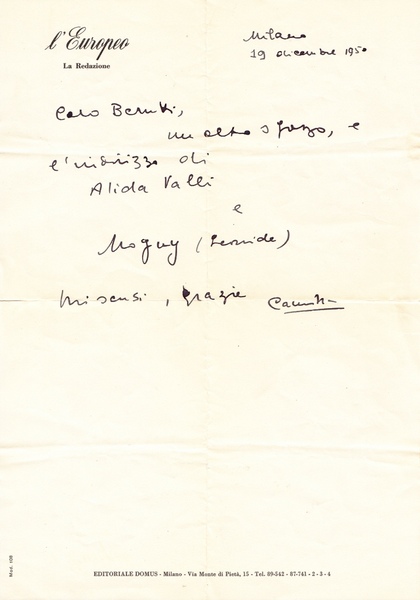 l'Europeo
La Redazione
Milano
19 dicembre 1950
Caro Berutti,
un altro sforzo, e
l'indirizzo di
Alida Valli
e
Moguy (Leonide)
Mi scusi, grazie
Mod. 108
EDITORIALE DOMUS - Milano - Via Monte di Pietà, 15 - Tel. 89-542 - 87-741 - 2 - 3 - 4